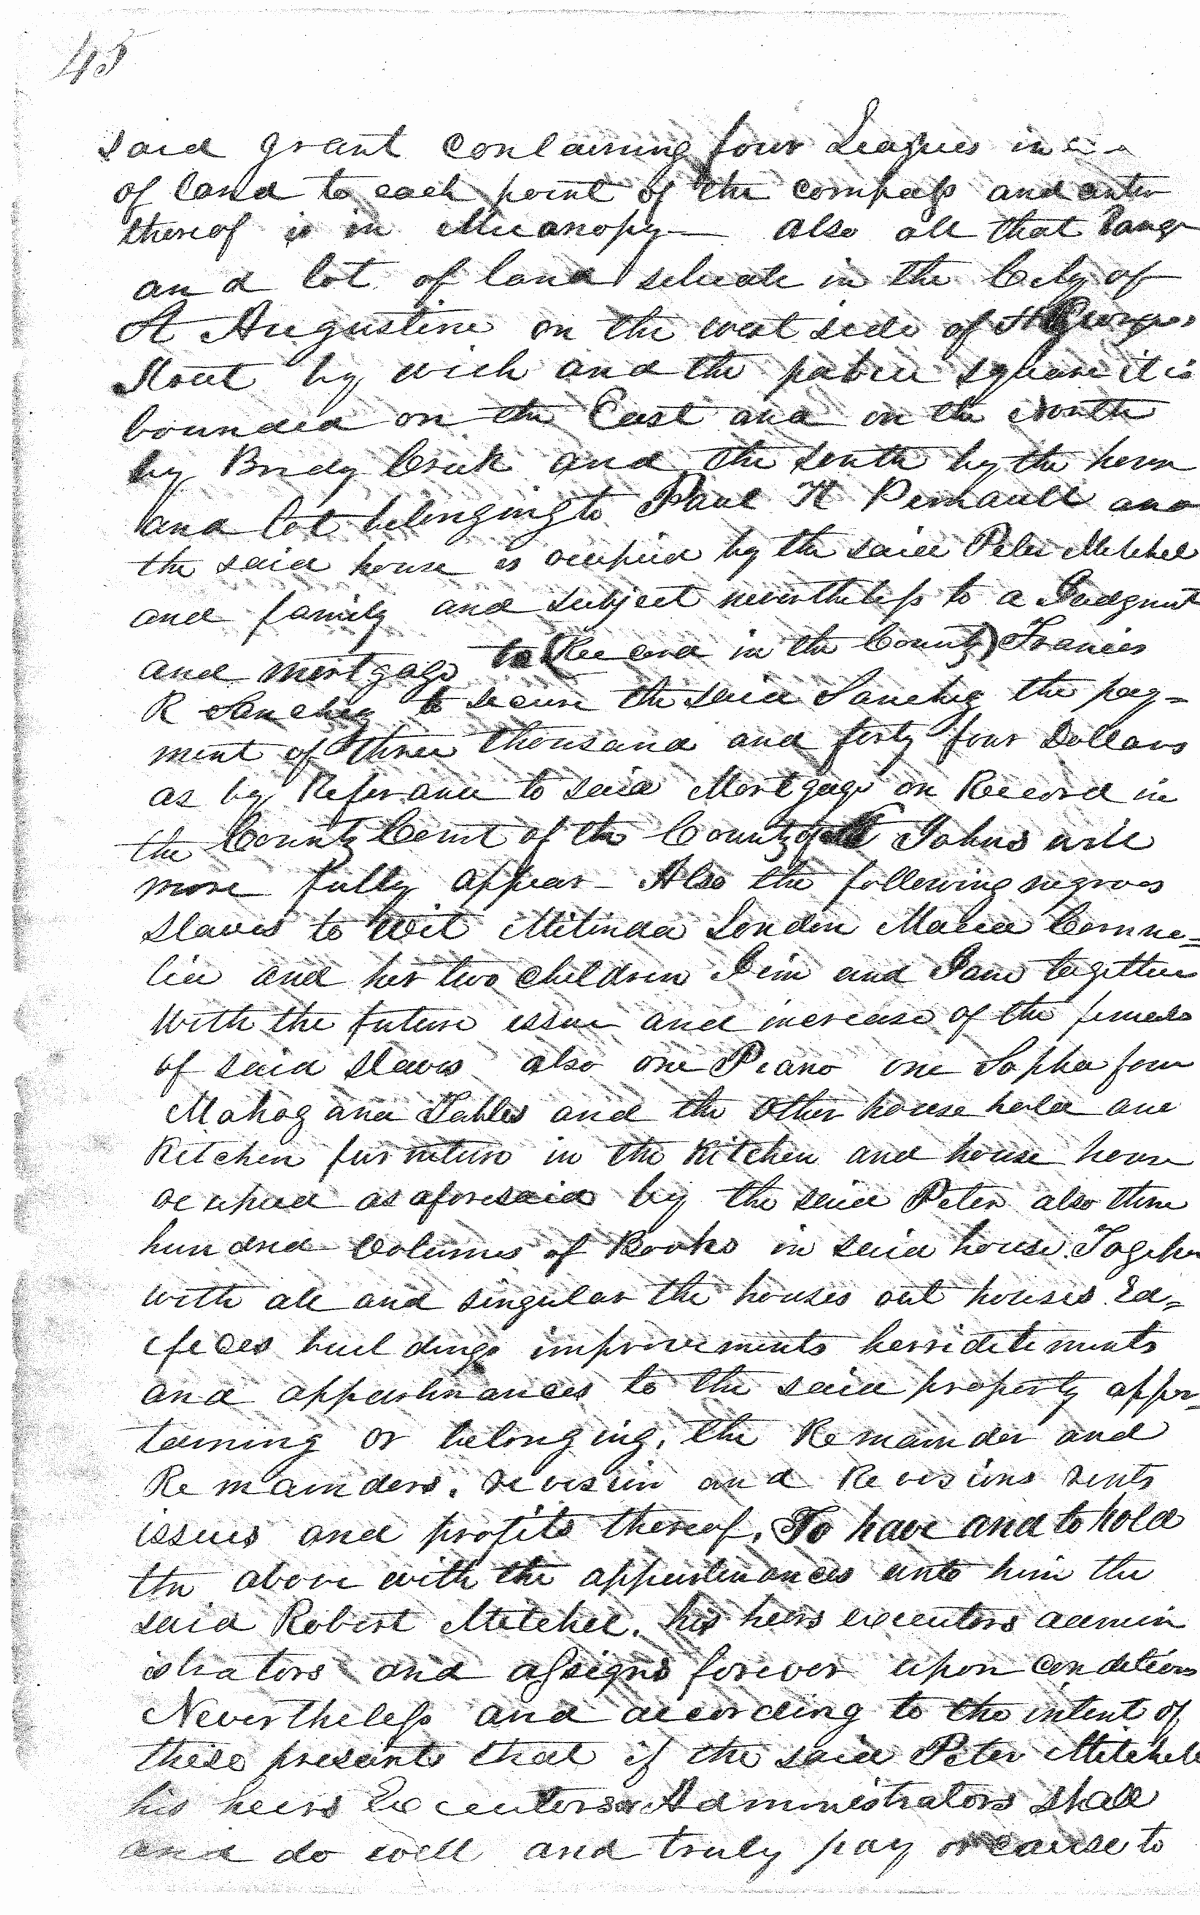 45
said grant containing four Leagues in
of land to each point of the compass and center
thereof is in Micanopy — also all that
and lot of land setuate in the City of
St Augustine on the west side of St Georges
Street by wich and the public square it is
bounded on the East and on the North
by Bridg Creek and the South by the house
and lot belonging to Paul H and
the said house is occupied by the said Peter Mitchel
and family and subject nevertheless to a Judgment
and mortgage to (Record in the County) Francis
R Sanchez to secure the said Sanchez the pay=
ment of three thousand and forty four Dollars
as by Referance to said Mortgage on Record in
the County Court of the County of St Johns will
more fully appear — Also the following negroes
Slaves to Wit Milinda London Maria Corne=
lia and her two children Jim and Jane together
With the future issue and increase of the females
of said slaves also one Piano one Sopha four
Mahogana Tables and the other house hold and
Kitchen furniture in the Kitchen and house
occupied as aforesaid by the said Peter also three
hundred Volumes of Books in said house. Together
with all and singular the houses out houses Ed=
ifeces buildings improvements herriditiments
and appurtinances to the said property apper=
taining or belonging, the Remainder and
Remainders. revision and Revisions rents
issues and profits thereof. To have and to hold
the above with the appurtinances unto him the
said Robert Mitchel. his heirs executors admin
istrators and assigns forever upon conditions
Nevertheless and according to the intent of
these presents that if the said Peter Mitchell
his heirs Executors or Administrators shall
and do well and truly pay or cause to